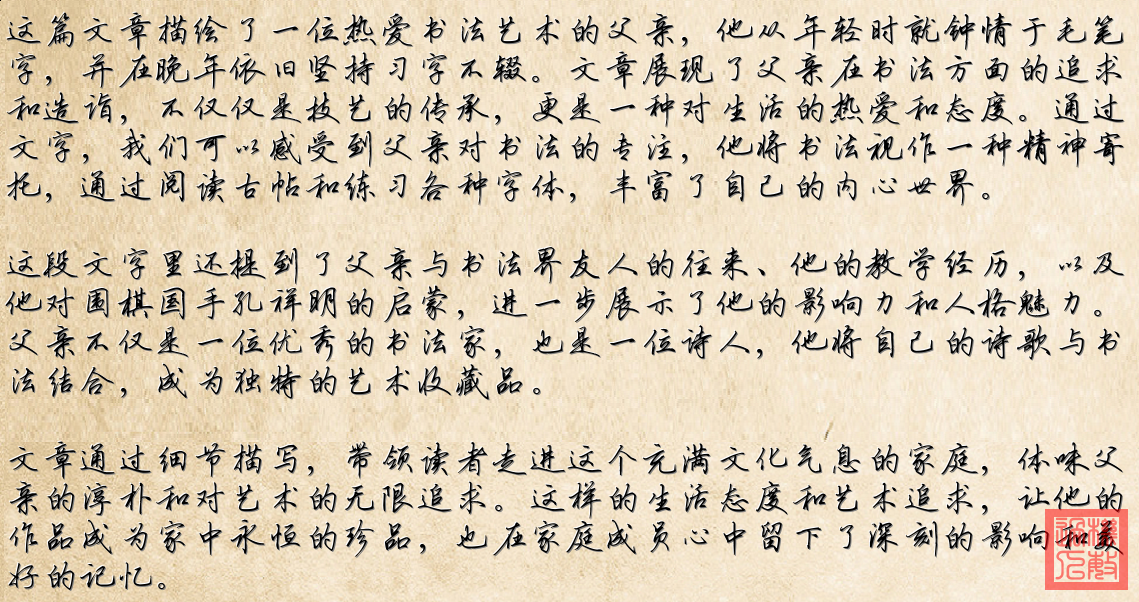 这篇文章描绘了一位热爱书法艺术的父亲，他从年轻时就钟情于毛笔
字，并在晚年依旧坚持习字不辍。文章展现了父亲在书法方面的追求
和造诣，不仅仅是技艺的传承，更是一种对生活的热爱和态度。通过
文字，我们可以感受到父亲对书法的专注，他将书法视作一种精神寄
托，通过阅读古帖和练习各种字体，丰富了自己的内心世界。
这段文字里还提到了父亲与书法界友人的往来、他的教学经历，以及
他对围棋国手孔祥明的启蒙，进一步展示了他的影响力和人格魅力。
父亲不仅是一位优秀的书法家，也是一位诗人，他将自己的诗歌与书
法结合，成为独特的艺术收藏品。
文章通过细节描写，带领读者走进这个充满文化气息的家庭，体味父
亲的淳朴和对艺术的无限追求。这样的生活态度和艺术追求，让他的
作品成为家中永恒的珍品，也在家庭成员心中留下了深刻的影响和美
好的记忆。